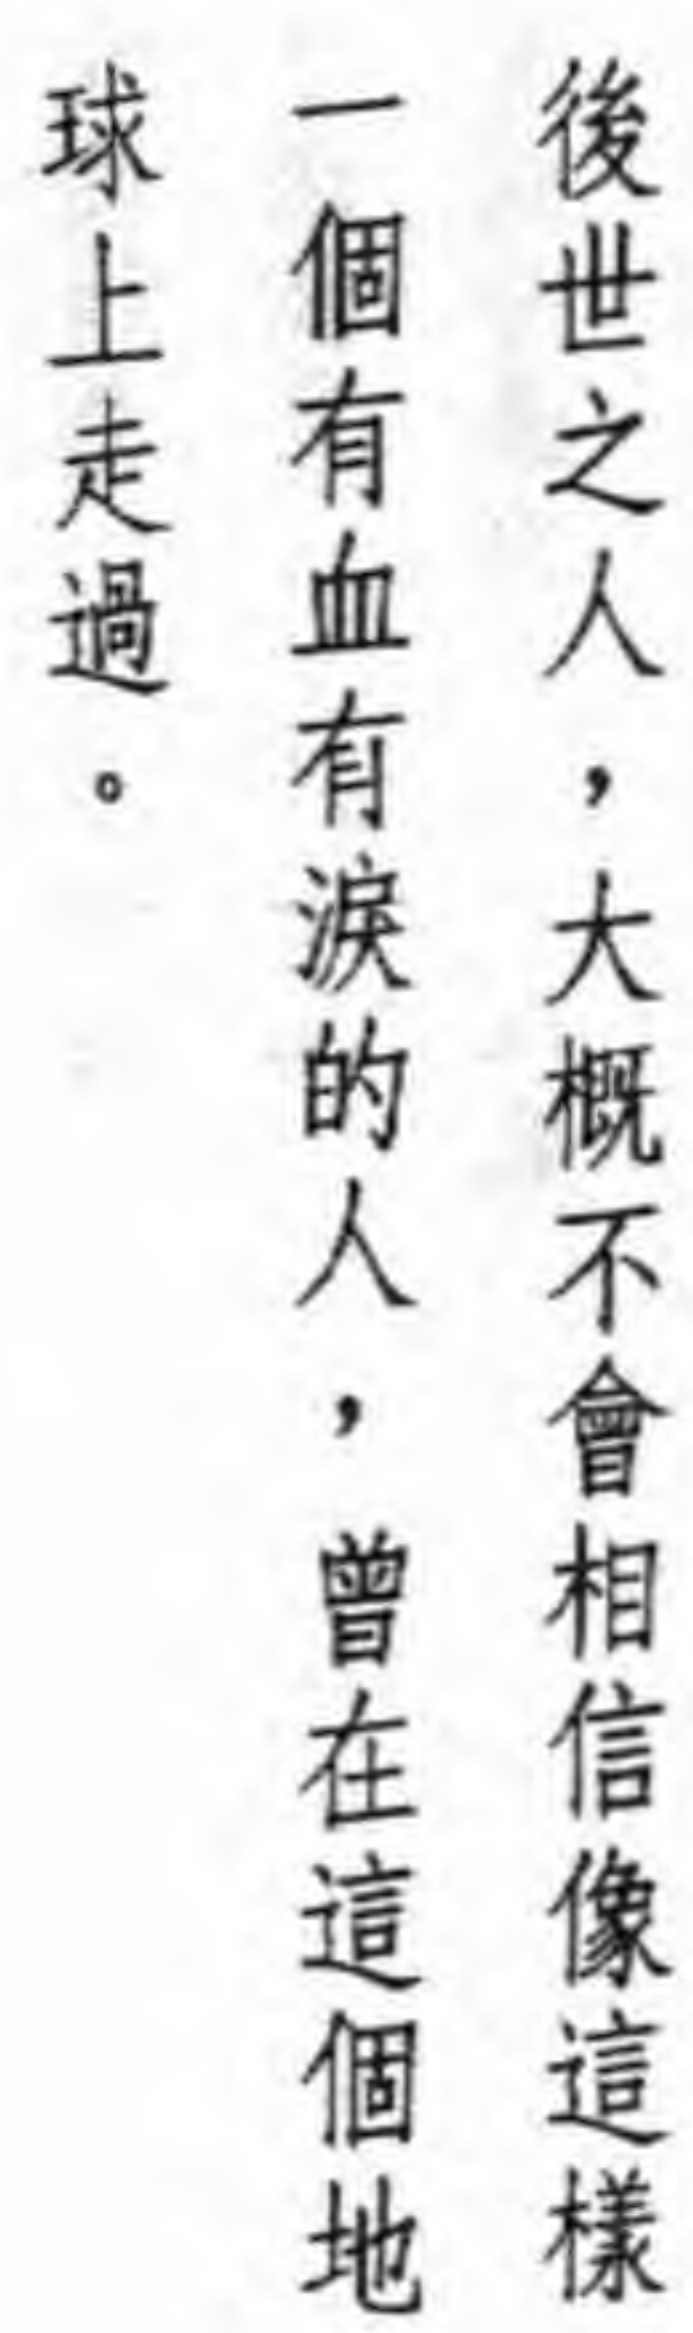 後世之人，大概不會相信像這樣
一個有血有淚的人，曾在這個地
球上走過。